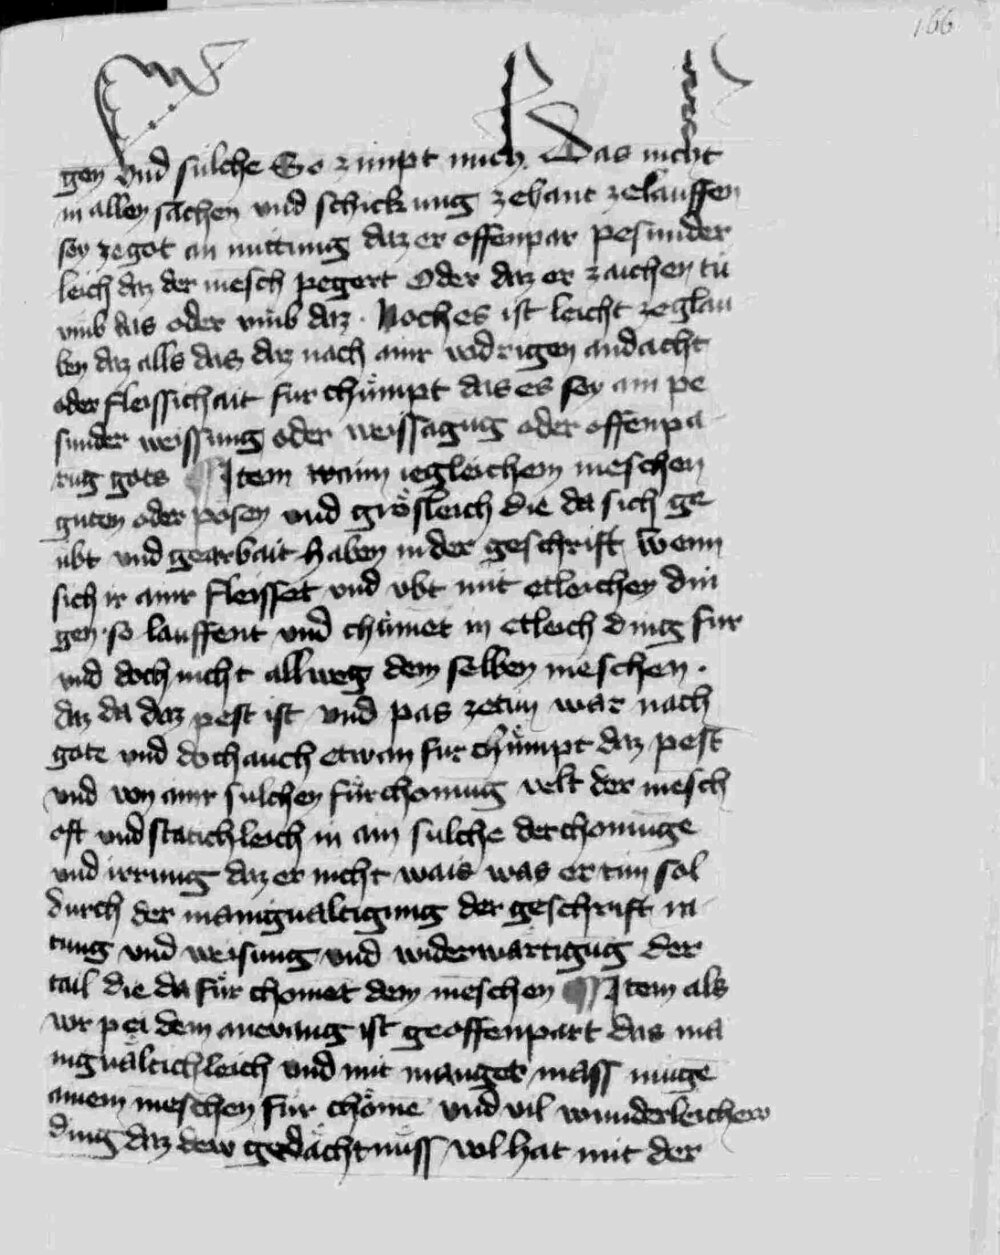 166
gen vnd sulche So zimpt mich. Das nicht
in allen sachen vnd schickung zehant zelauffen
sey ze got an muttung daz er offenpar pesunder
leich daz der mēsch pegert Oder daz er zaichen tu
vmb das oder vmb daz. Noch es ist leicht ze glau
ben daz alls das daz nach ainr widrigen andacht
oder fleissichait fur chümpt das es sey ain pe
sunder weissung oder weissagūg oder offenpa
rūg gots Item wann iegleichem meschen
guten oder posen vnd grösleich die da sich ge
ubt vnd gearbait haben in der geschrift Wenn
sich ir ainr fleisset vnd vbt mit etleichen din
gen so lauffent vnd chümet in etleich ding fur
vnd doch nicht allweg dem selben meschen.
daz da daz pest ist vnd pas zetun war nach
gote vnd doch auch etwan fur chümpt daz pest
vnd von ainr sulchen fürchomūg velt der mesch
oft vnd statichleich in ain sulche derchomūge
vnd irrung daz er nicht wais was er tun sol
durch der manigualtigung der geschrift ra
tung vnd weisung vnd widerwartigūg der
tail die da für chomet dem meschen Item als
vor pei dem anevang ist geoffenpart das ma
nigualtichleich vnd mit maniger mass mūgē
ainem meschen für chömē vnd vil wunderleichew
ding daz dew gedächtnüss wol hat mit der